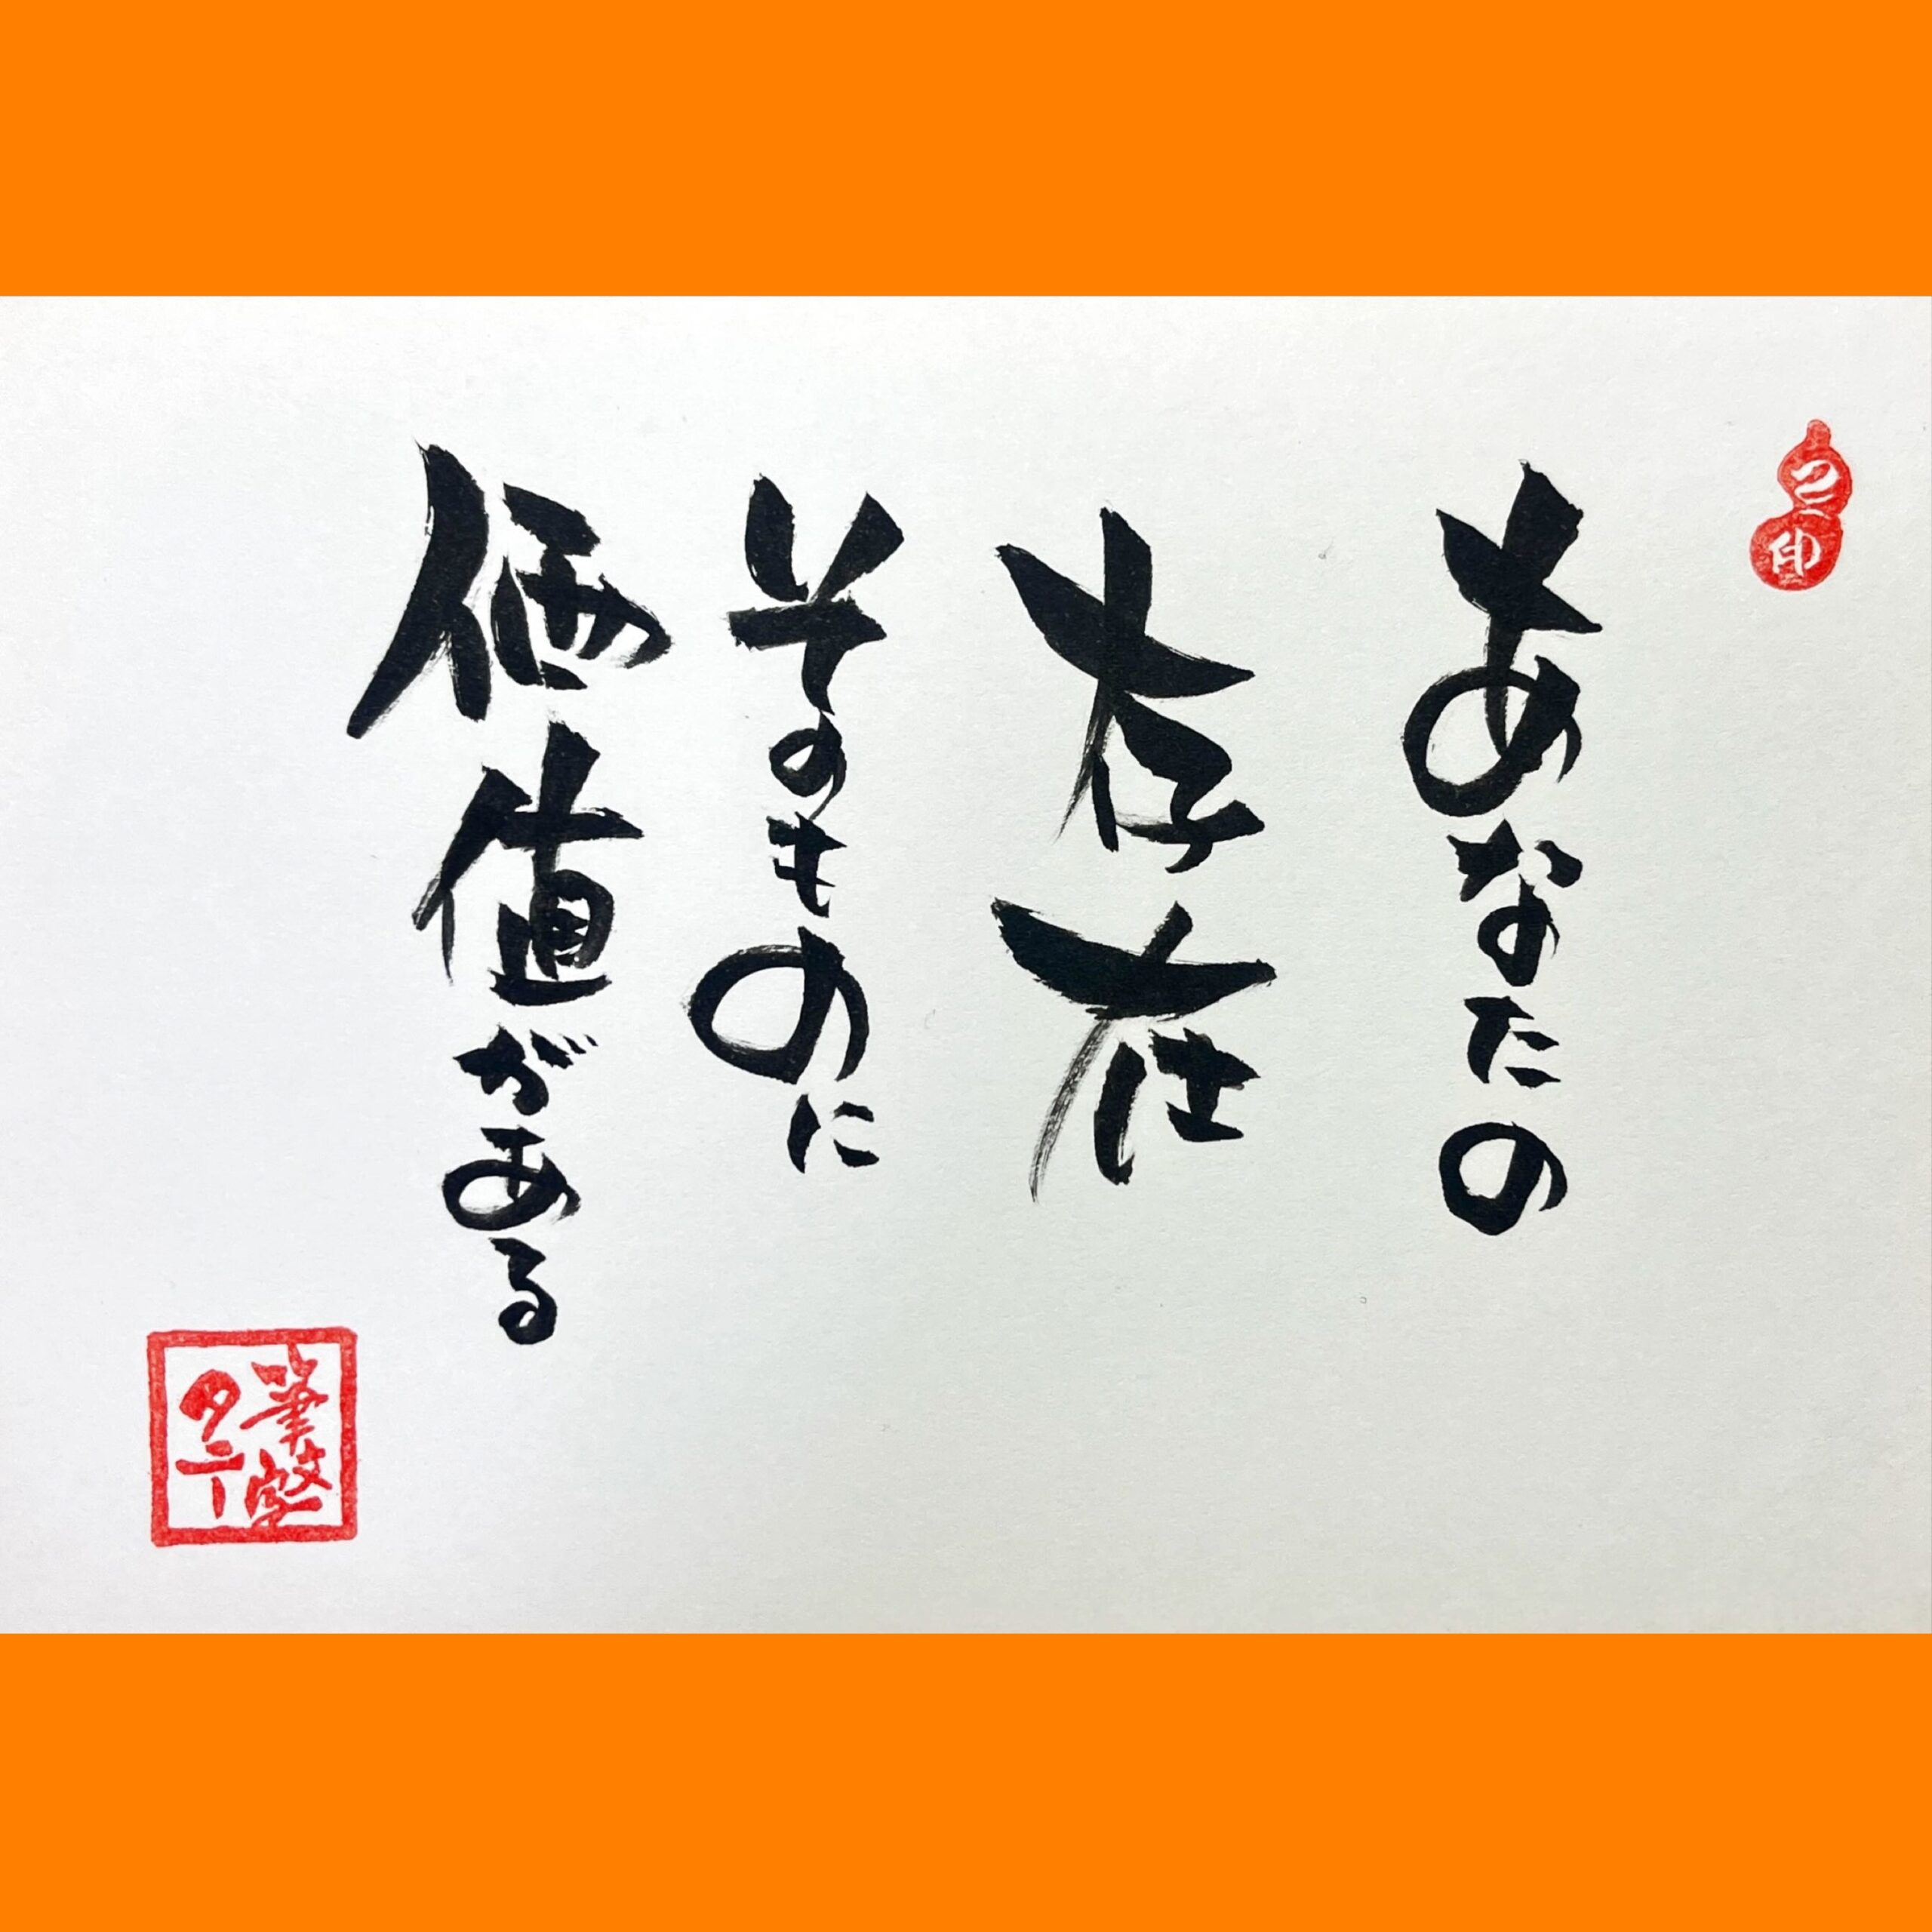 あなたの
存在
そのものに
価値がある
筆文字
タニー